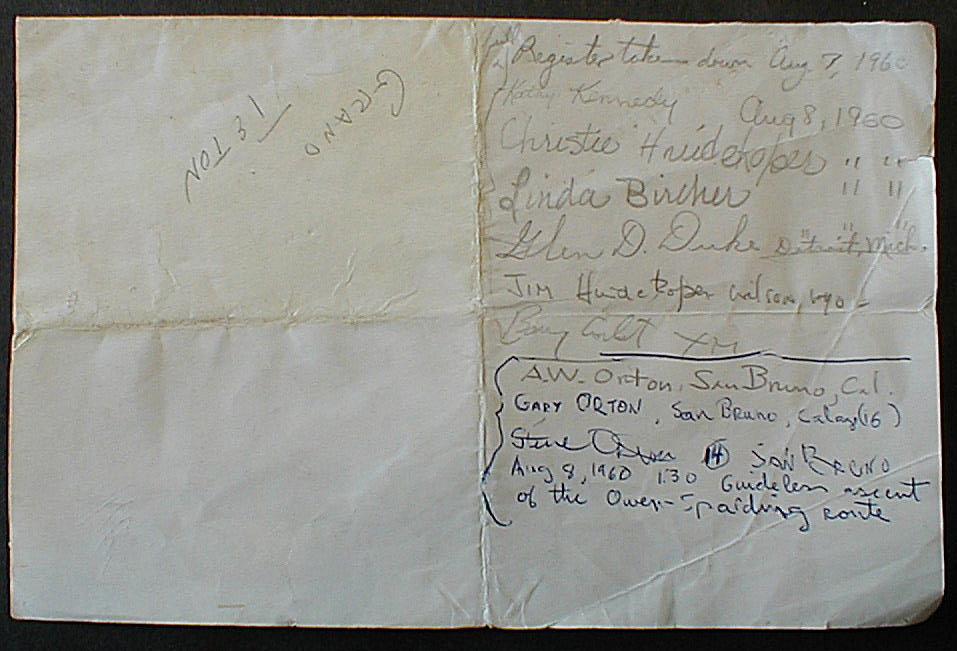 GRAND
TETON
Register taken down Aug 7, 1960
Kathy Kennedy
Aug 8, 1960
Christie Huidekoper " "
Linda Bircher " "
Glen D. Duke Detroit, Mich. " "
Jim Huidekoper Wilson, Wyo -
Barry Corbet
A.W. Orton, San Bruno, Cal.
GARY ORTON, San Bruno, (16)
Steve 14 SAN BRUNO
Aug 8, 1960 1:30 Guideless ascent
of the Owen-Spalding route